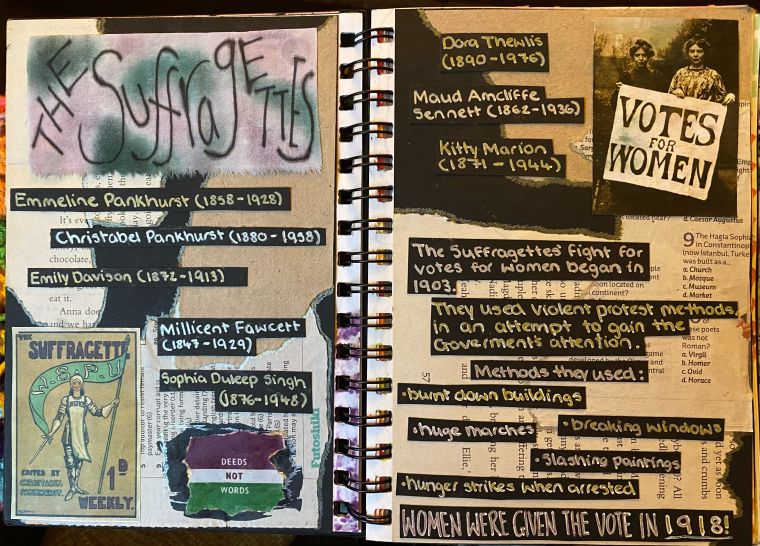 THE Suffragettes
Emmeline Pankhurst (1858-1928)
Christabel Pankhurst (1880-1958)
Emily Davison (1872-1913)
Millicent Fawcett
(1847-1929)
Sophia Duleep Singh
(1876-1948)
It's
chocolate,
eat it.
Anna
and we
THE
SUFFRAGETTE
W.S.P.U
EDITED BY
CHRISTABEL
PANKHURST.
1D
WEEKLY.
DEEDS
NOT
WORDS
Futoshiki
Dora Thewlis
(1890-1976)
Maud Arncliffe
Sennett (1862-1936)
Kitty Marion
(1871-1944)
VOTES
FOR
WOMEN
d. Caesar Augustus
9 The Hagia Sophia
in Constantinop
(now Istanbul, Turke
was built as a..
a. Church
b. Mosque
c. Museum
d. Market
The Suffragettes' fight for
votes for women began in
1903.
They used violent protest methods,
in an attempt to gain the
Goverment's attention.
ese poets
was not
Roman?
a. Virgil
b. Homer
c. Ovid
d. Horace
57
Methods they used:
•burnt down buildings
•huge marches
•breaking windows
•Slashing paintings
•hunger strikes when arrested
WOMEN WERE GIVEN THE VOTE IN 1918!